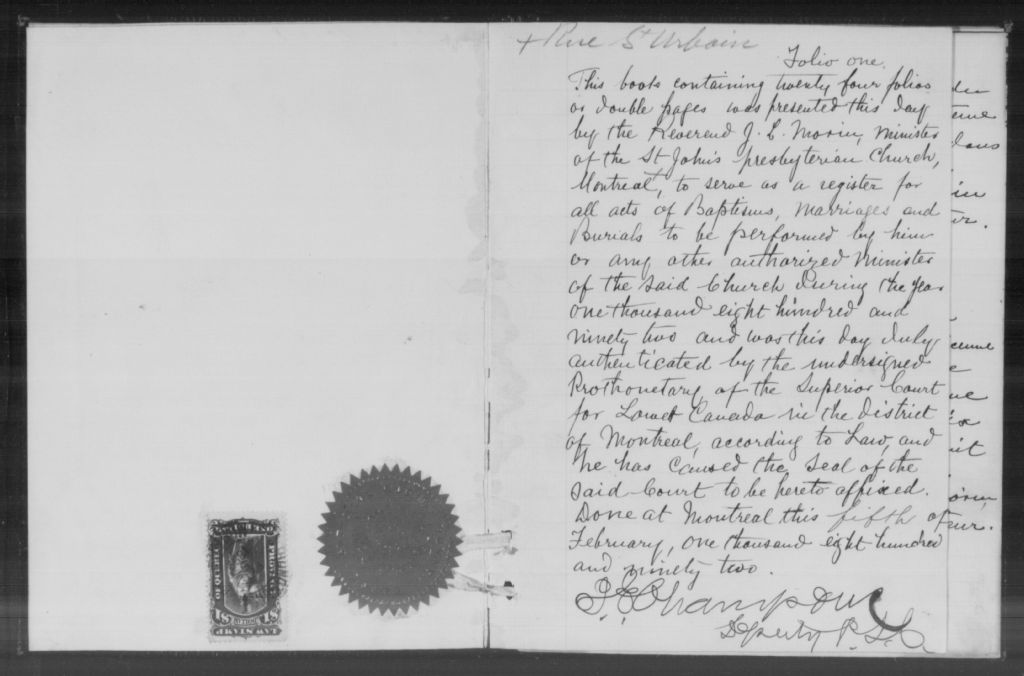 + Rue St Urbain
Folio one.
This book containing twenty four folios
or double pages was presented this day
by the Reverend J. L. Morin, Minister
of the St John's presbyterian Church,
Montreal+, to serve as a register for
all acts of Baptisms, Marriages and
Burials to be performed by him
or any other authorized Minister
of the said Church during the year
one thousand eight hundred and
ninety two and was this day duly
authenticated by the undersigned
Prothonotary of the Superior Court
for Lower Canada in the district
of Montreal, according to Law, and
he has caused the Seal of the
said Court to be hereto affixed.
Done at Montreal this fifth of
February, one thousand eight hundred
and ninety two.
Champoux
Deputy P. S. C.
LAW STAMP
$1
$1
PROVINCE
OF QUEBEC